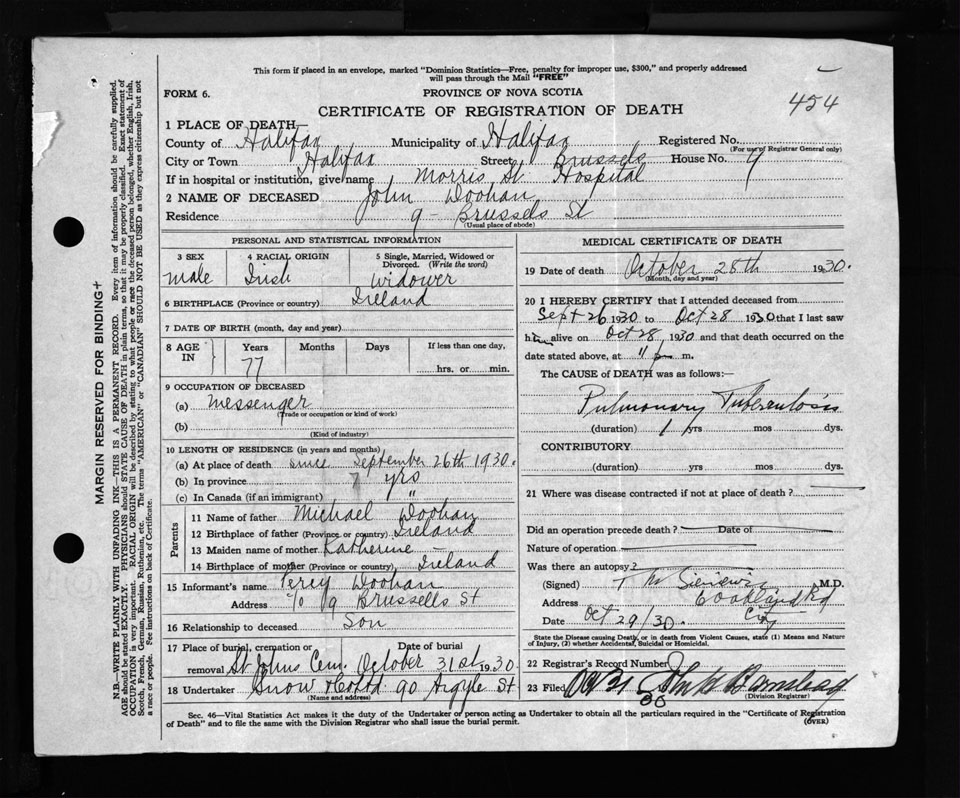 This form if placed in an envelope, marked "Dominion Statistics—Free, penalty for improper use, $300," and properly addressed
will pass through the Mail "FREE"
FORM 6.
PROVINCE OF NOVA SCOTIA
CERTIFICATE OF REGISTRATION OF DEATH
454
1 PLACE OF DEATH—
County of Halifax Municipality of Halifax Registered No.
(For use of Registrar General only)
City or Town Halifax Street Brussels House No. 9
If in hospital or institution, give name Morris St Hospital
2 NAME OF DECEASED John Doohan
Residence 9 - Brussels St
(Usual place of abode)
PERSONAL AND STATISTICAL INFORMATION
3 SEX 4 RACIAL ORIGIN 5 Single, Married, Widowed or
Divorced. (Write the word)
Male Irish Widower
6 BIRTHPLACE (Province or country) Ireland
7 DATE OF BIRTH (month, day and year)
8 AGE IN Years Months Days If less than one day,
77 hrs. or min.
9 OCCUPATION OF DECEASED
(a) Messenger
(Trade or occupation or kind of work)
(b)
(Kind of industry)
10 LENGTH OF RESIDENCE (in years and months)
(a) At place of death since September 26th 1930.
(b) In province yrs
(c) In Canada (if an immigrant) "
Parents
11 Name of father Michael Doohan
12 Birthplace of father (Province or country) Ireland
13 Maiden name of mother Katherine
14 Birthplace of mother (Province or country) Ireland
15 Informant's name Percy Doohan
Address 9 Brussells St
16 Relationship to deceased Son
17 Place of burial, cremation or Date of burial
removal St Johns Cem. October 31st 1930
18 Undertaker Snow & Co Ltd 90 Argyle St
(Name and address)
MEDICAL CERTIFICATE OF DEATH
19 Date of death October 28th 1930.
(Month, day and year)
20 I HEREBY CERTIFY that I attended deceased from
Sept 26 1930 to Oct 28 1930 that I last saw
him alive on Oct 28 1930 and that death occurred on the
date stated above, at 11 p m.
The CAUSE of DEATH was as follows:—
Pulmonary Tuberculosis
(duration) 1 yrs mos dys.
CONTRIBUTORY.
(duration) yrs mos dys.
21 Where was disease contracted if not at place of death?
Did an operation precede death? Date of
Nature of operation
Was there an autopsy?
(Signed) M.D.
Address Rd
Date Oct 29/30. City
State the Disease causing Death, or in death from Violent Causes, state (1) Means and Nature
of Injury, (2) whether Accidental, Suicidal or Homicidal.
22 Registrar's Record Number
23 Filed Oct 31 Barnstead
(Division Registrar)
Sec. 46—Vital Statistics Act makes it the duty of the Undertaker or person acting as Undertaker to obtain all the particulars required in the "Certificate of Registration
of Death" and to file the same with the Division Registrar who shall issue the burial permit.
(OVER)
MARGIN RESERVED FOR BINDING+
N.B.—WRITE PLAINLY WITH UNFADING INK—THIS IS A PERMANENT RECORD. Every item of information should be carefully supplied.
AGE should be stated EXACTLY. PHYSICIANS should STATE CAUSE OF DEATH in plain terms, so that it may be properly classified. Exact statement of
OCCUPATION is very important. RACIAL ORIGIN will be described by stating to what people or race the deceased person belonged, whether English, Irish,
Scotch, French, German, Russian, Ruthenian, etc. The terms "AMERICAN" or "CANADIAN" SHOULD NOT BE USED as they express citizenship but not
a race or people. See instructions on back of Certificate.